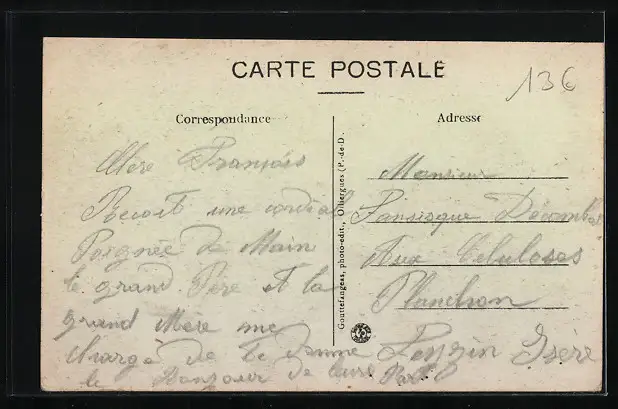 CARTE POSTALE
136
Correspondance
Adresse
Mère François
Recoit une cordial
Poignée de Main
le grand Père et la
grand Mère me
charge de te donne
le Bonjour de leure Part
Gouttefangeas, photo-edit., Olliergues (P.-de-D.
Monsieur
Fansisque Décombas
Aux Celuloses
Planchon
Feyzin Isère